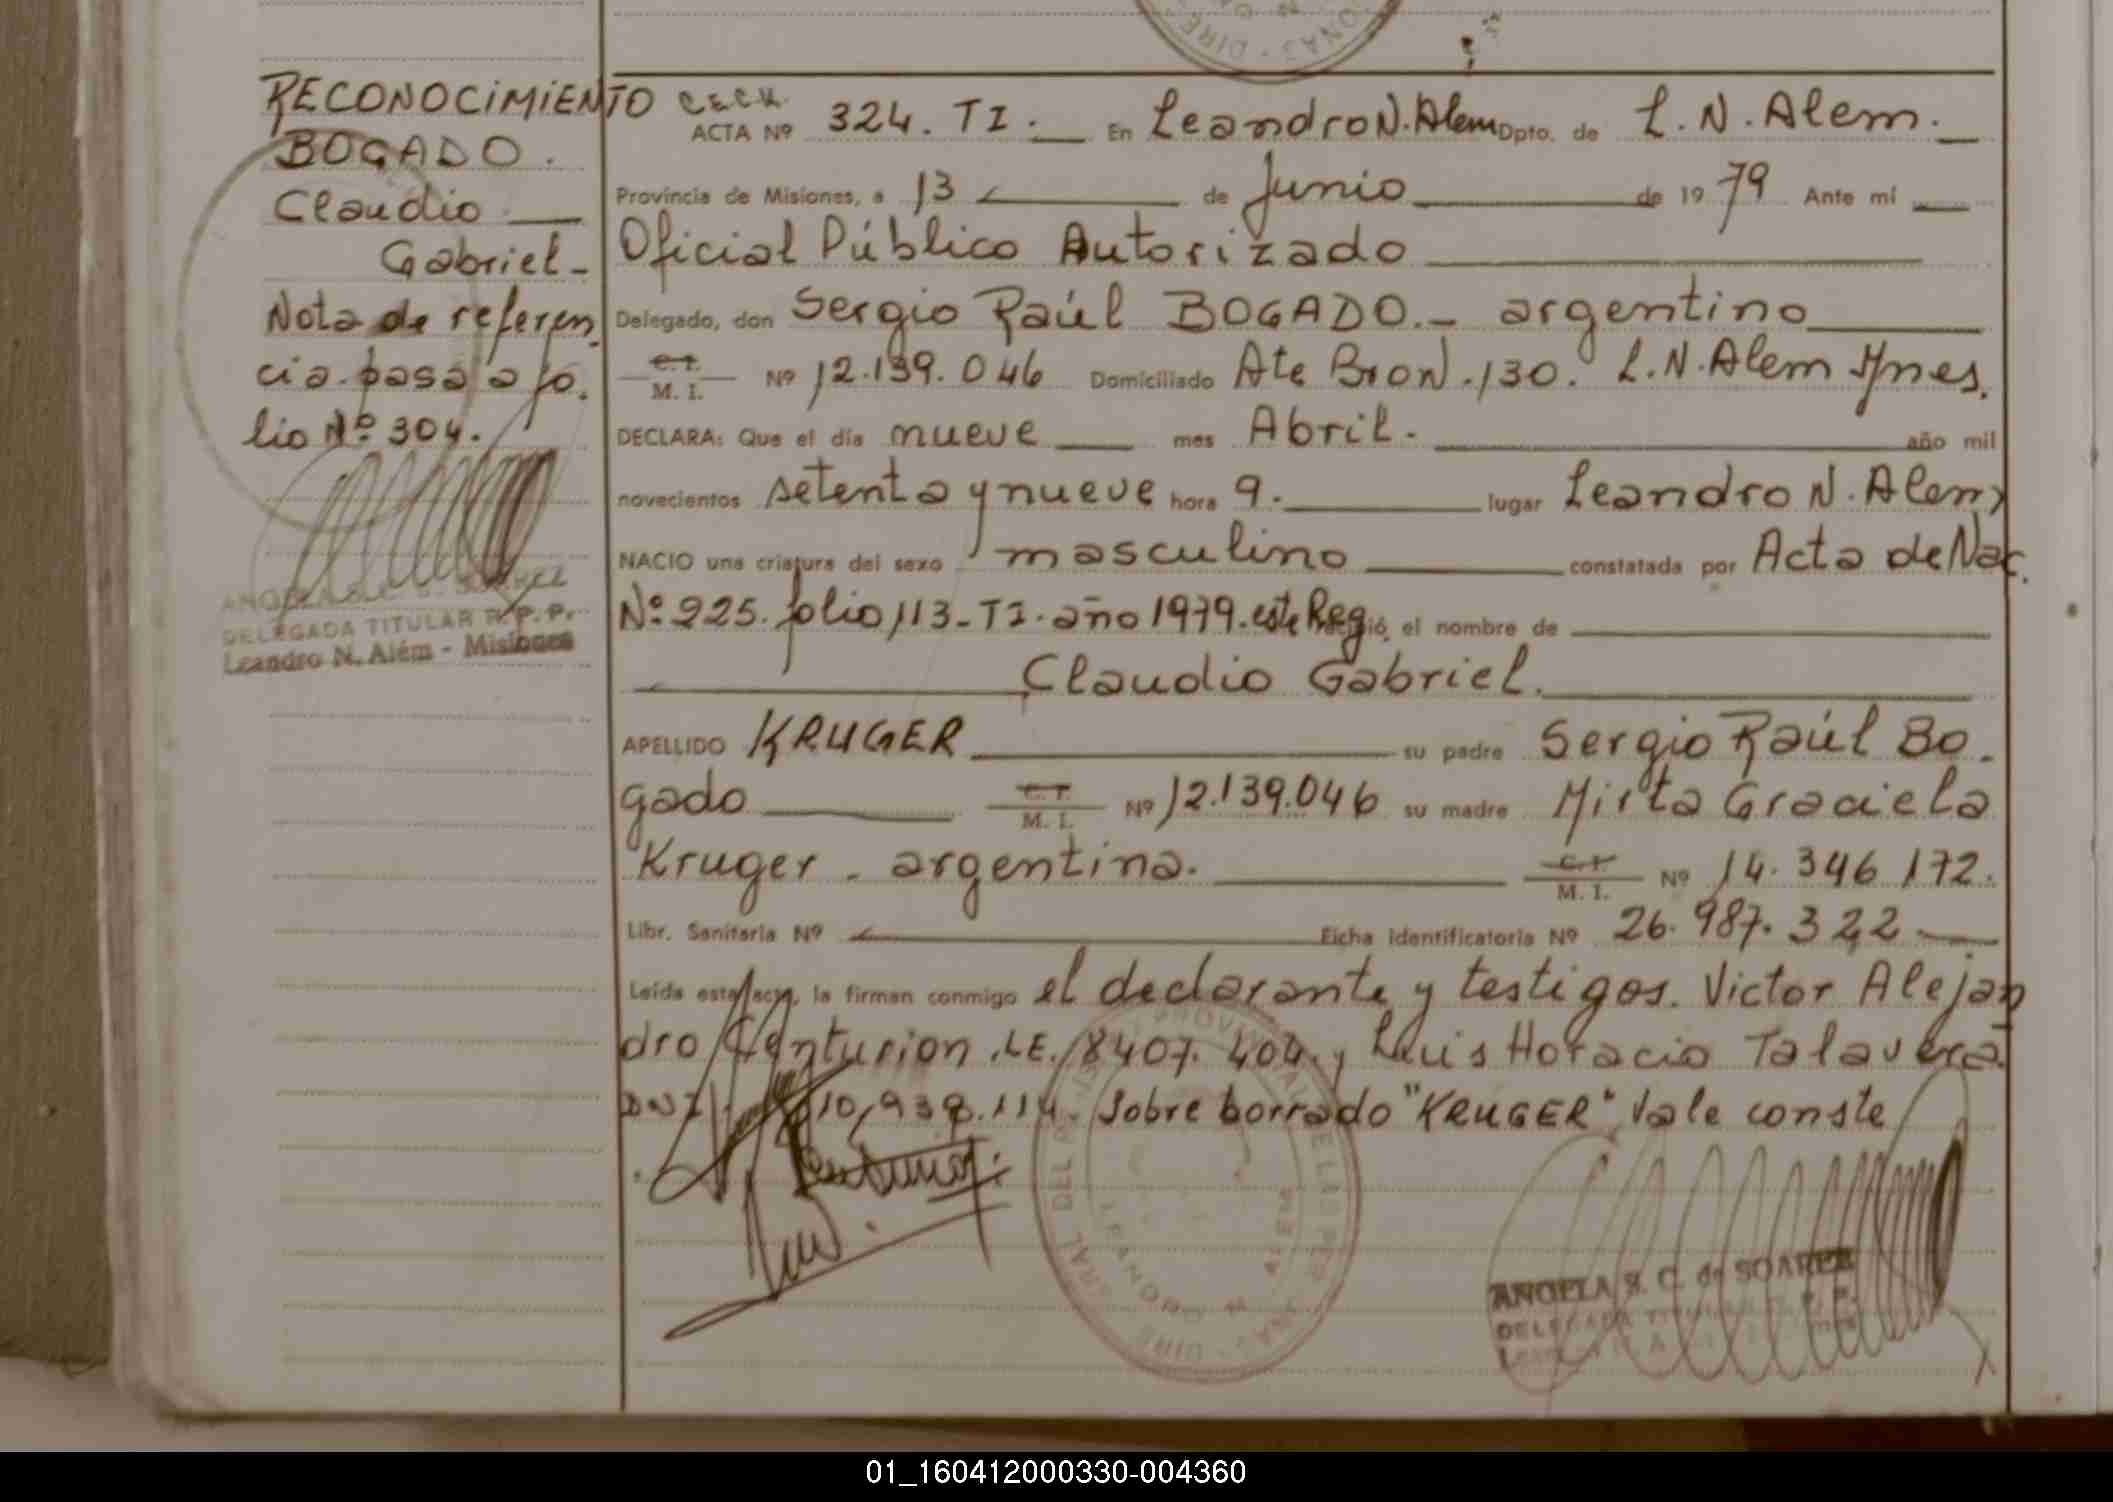 RECONOCIMIENTO
BOGADO.
Claudio
Gabriel-
Nota de referen
cia pasa a fo.
lio Nº 304.
DELEGADA TITULAR R.P.P.
Leandro N. Além - Misiones
ACTA Nº 324. TI. En Leandro N. Alem Dpto. de L. N. Alem.
Provincia de Misiones, a 13 de Junio de 1979 Ante mí
Oficial Público Autorizado
Delegado, don Sergio Raúl BOGADO.- argentino
C.I. M. I. Nº 12.139.046 Domiciliado Ate Brow.130. L.N.Alem Mnes.
DECLARA: Que el día nueve mes Abril. año mil
novecientos setenta y nueve hora 9. lugar Leandro N. Alem
NACIO una criatura del sexo masculino constatada por Acta de Nac.
Nº 225. folio 113-TI. año 1979. este Reg el nombre de
Claudio Gabriel.
APELLIDO KRUGER su padre Sergio Raúl Bo.
gado C.I. M. I. Nº 12.139.046 su madre Mirta Graciela
Kruger - argentina. C.I. M. I. Nº 14.346 172.
Libr. Sanitaria Nº Ficha Identificatoria Nº 26.987.322
Leída esta acta, la firman conmigo el declarante y testigos. Victor Alejan
dro Centurion .LE. 8407.404. y Luis Horacio Talavera
DNI 10,938.114. Sobre borrado "KRUGER" Vale conste
ANGELA S. C. de SOAREZ
01_160412000330-004360